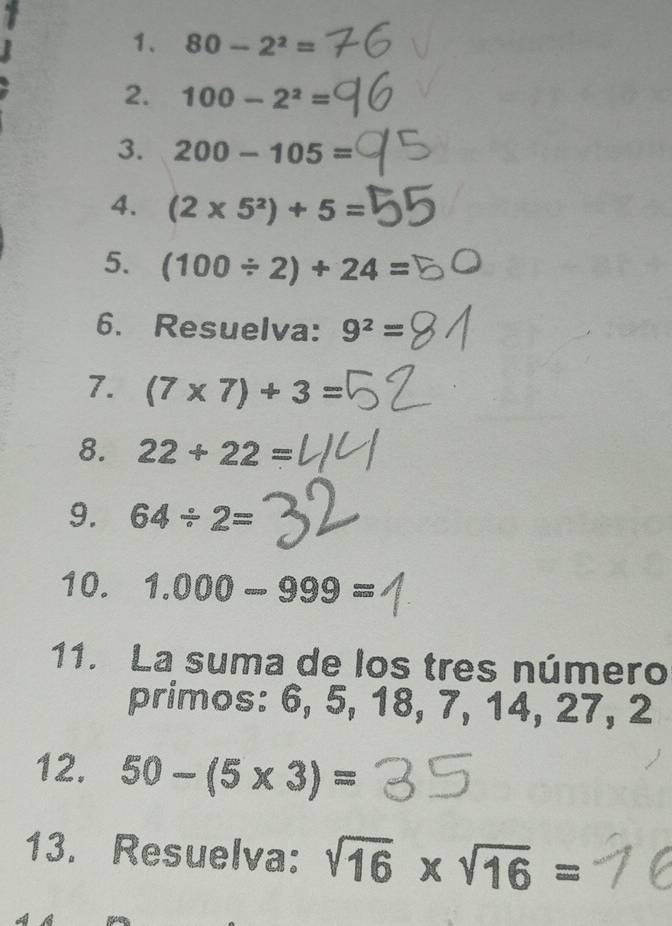 1. 80 - 2² = 76
2. 100 - 2² = 96
3. 200 - 105 = 95
4. (2 x 5²) + 5 = 55
5. (100 ÷ 2) + 24 = 50
6. Resuelva: 9² = 81
7. (7 x 7) + 3 = 52
8. 22 + 22 = 44
9. 64 ÷ 2= 32
10. 1.000 - 999 = 1
11. La suma de los tres número
primos: 6, 5, 18, 7, 14, 27, 2
12. 50 - (5 x 3) = 35
13. Resuelva: √16 x √16 = 16